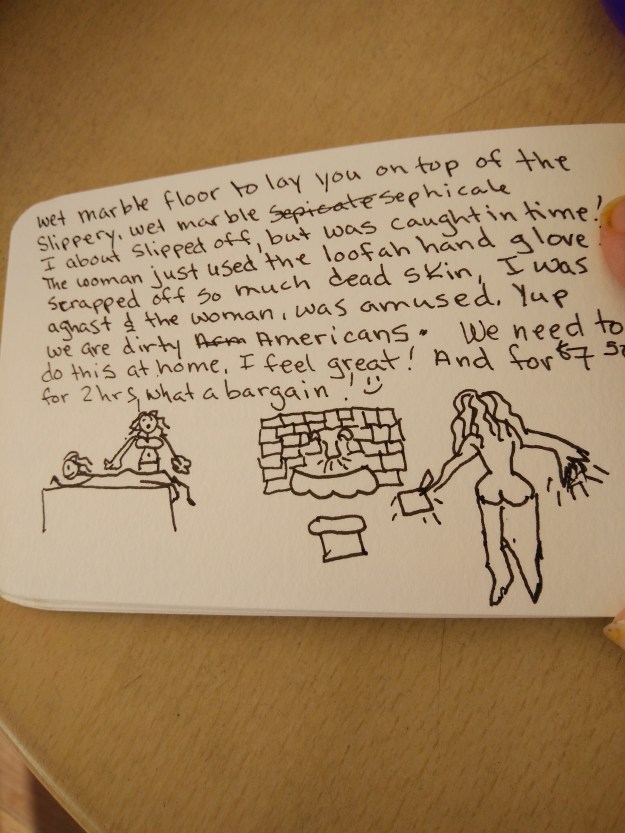 wet marble floor to lay you on top of the
slippery, wet marble sepicate sephicale
I about slipped off, but was caught in time!
The woman just used the loofah hand glove
scrapped off so much dead skin, I was
aghast & the woman, was amused. Yup
we are dirty Am Americans. We need to
do this at home, I feel great! And for $7 50
for 2hrs, what a bargain! :)